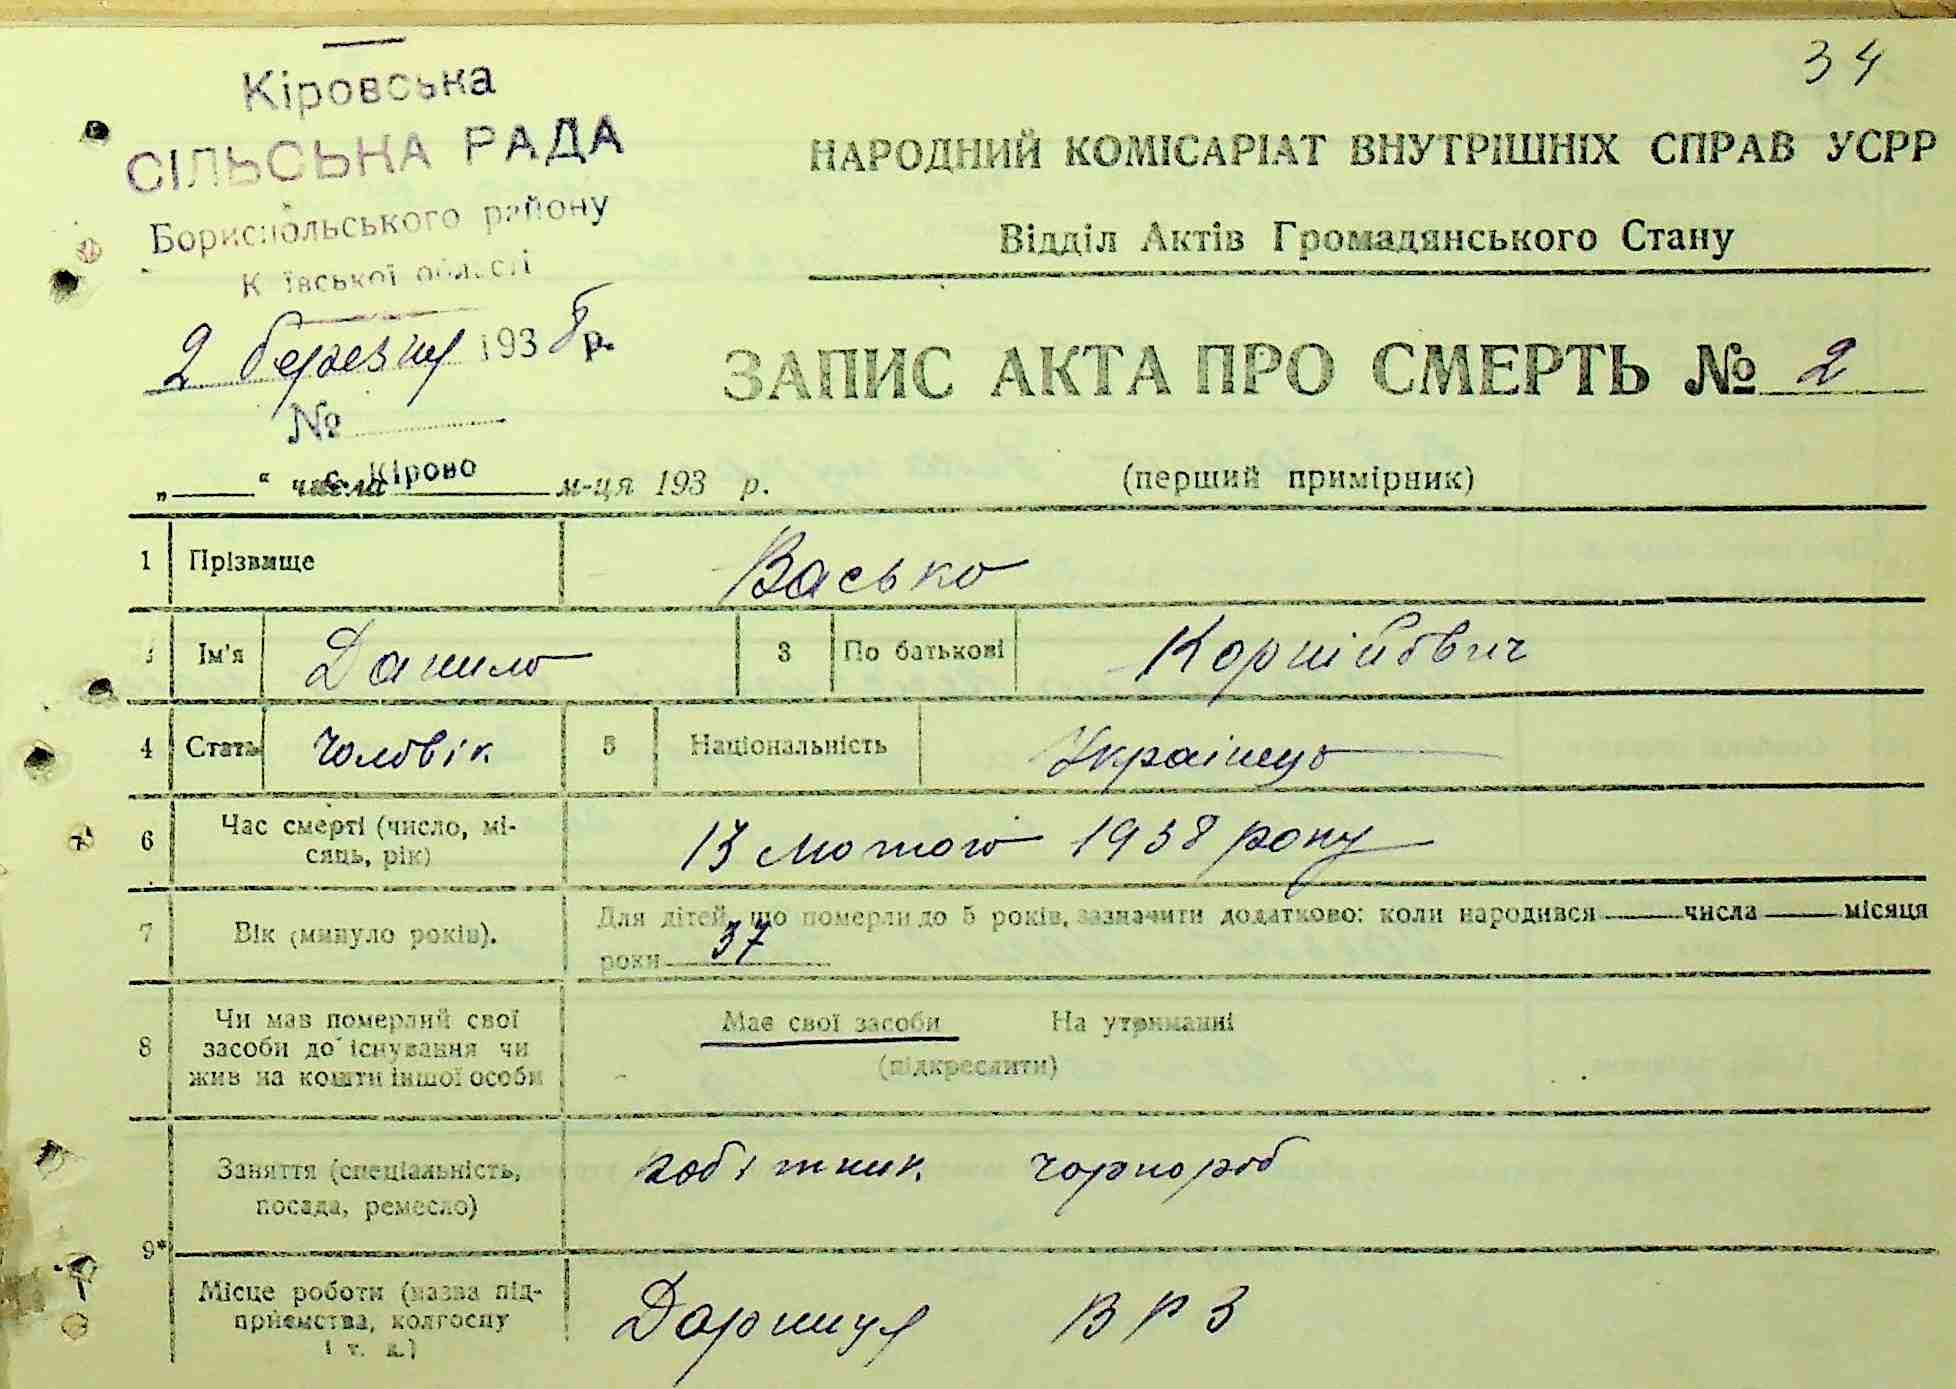 34
Кіровська
СІЛЬСЬКА РАДА
Бориспольського району
Київської області
2 березня 1938 р.
№
с. Кірово
НАРОДНИЙ КОМІСАРІАТ ВНУТРІШНІХ СПРАВ УСРР
Відділ Актів Громадянського Стану
ЗАПИС АКТА ПРО СМЕРТЬ № 2
„ “ числа м-ця 193 р.
(перший примірник)
1 Прізвище Васько
Ім'я Данило 3 По батькові Корнійович
4 Стать Чоловік 5 Національність Українець
6 Час смерті (число, мі-
сяць, рік) 13 лютого 1938 року
7 Вік (минуло років). Для дітей, що померли до 5 років, зазначити додатково: коли народився числа місяця
роки 37
8 Чи мав померлий свої
засоби до існування чи
жив на кошти іншої особи
Має свої засоби На утриманні
(підкреслити)
9* Заняття (спеціальність,
посада, ремесло) робітник чорнороб
Місце роботи (назва під-
приємства, колгоспу
і т. д.) Дарниця ВРЗ